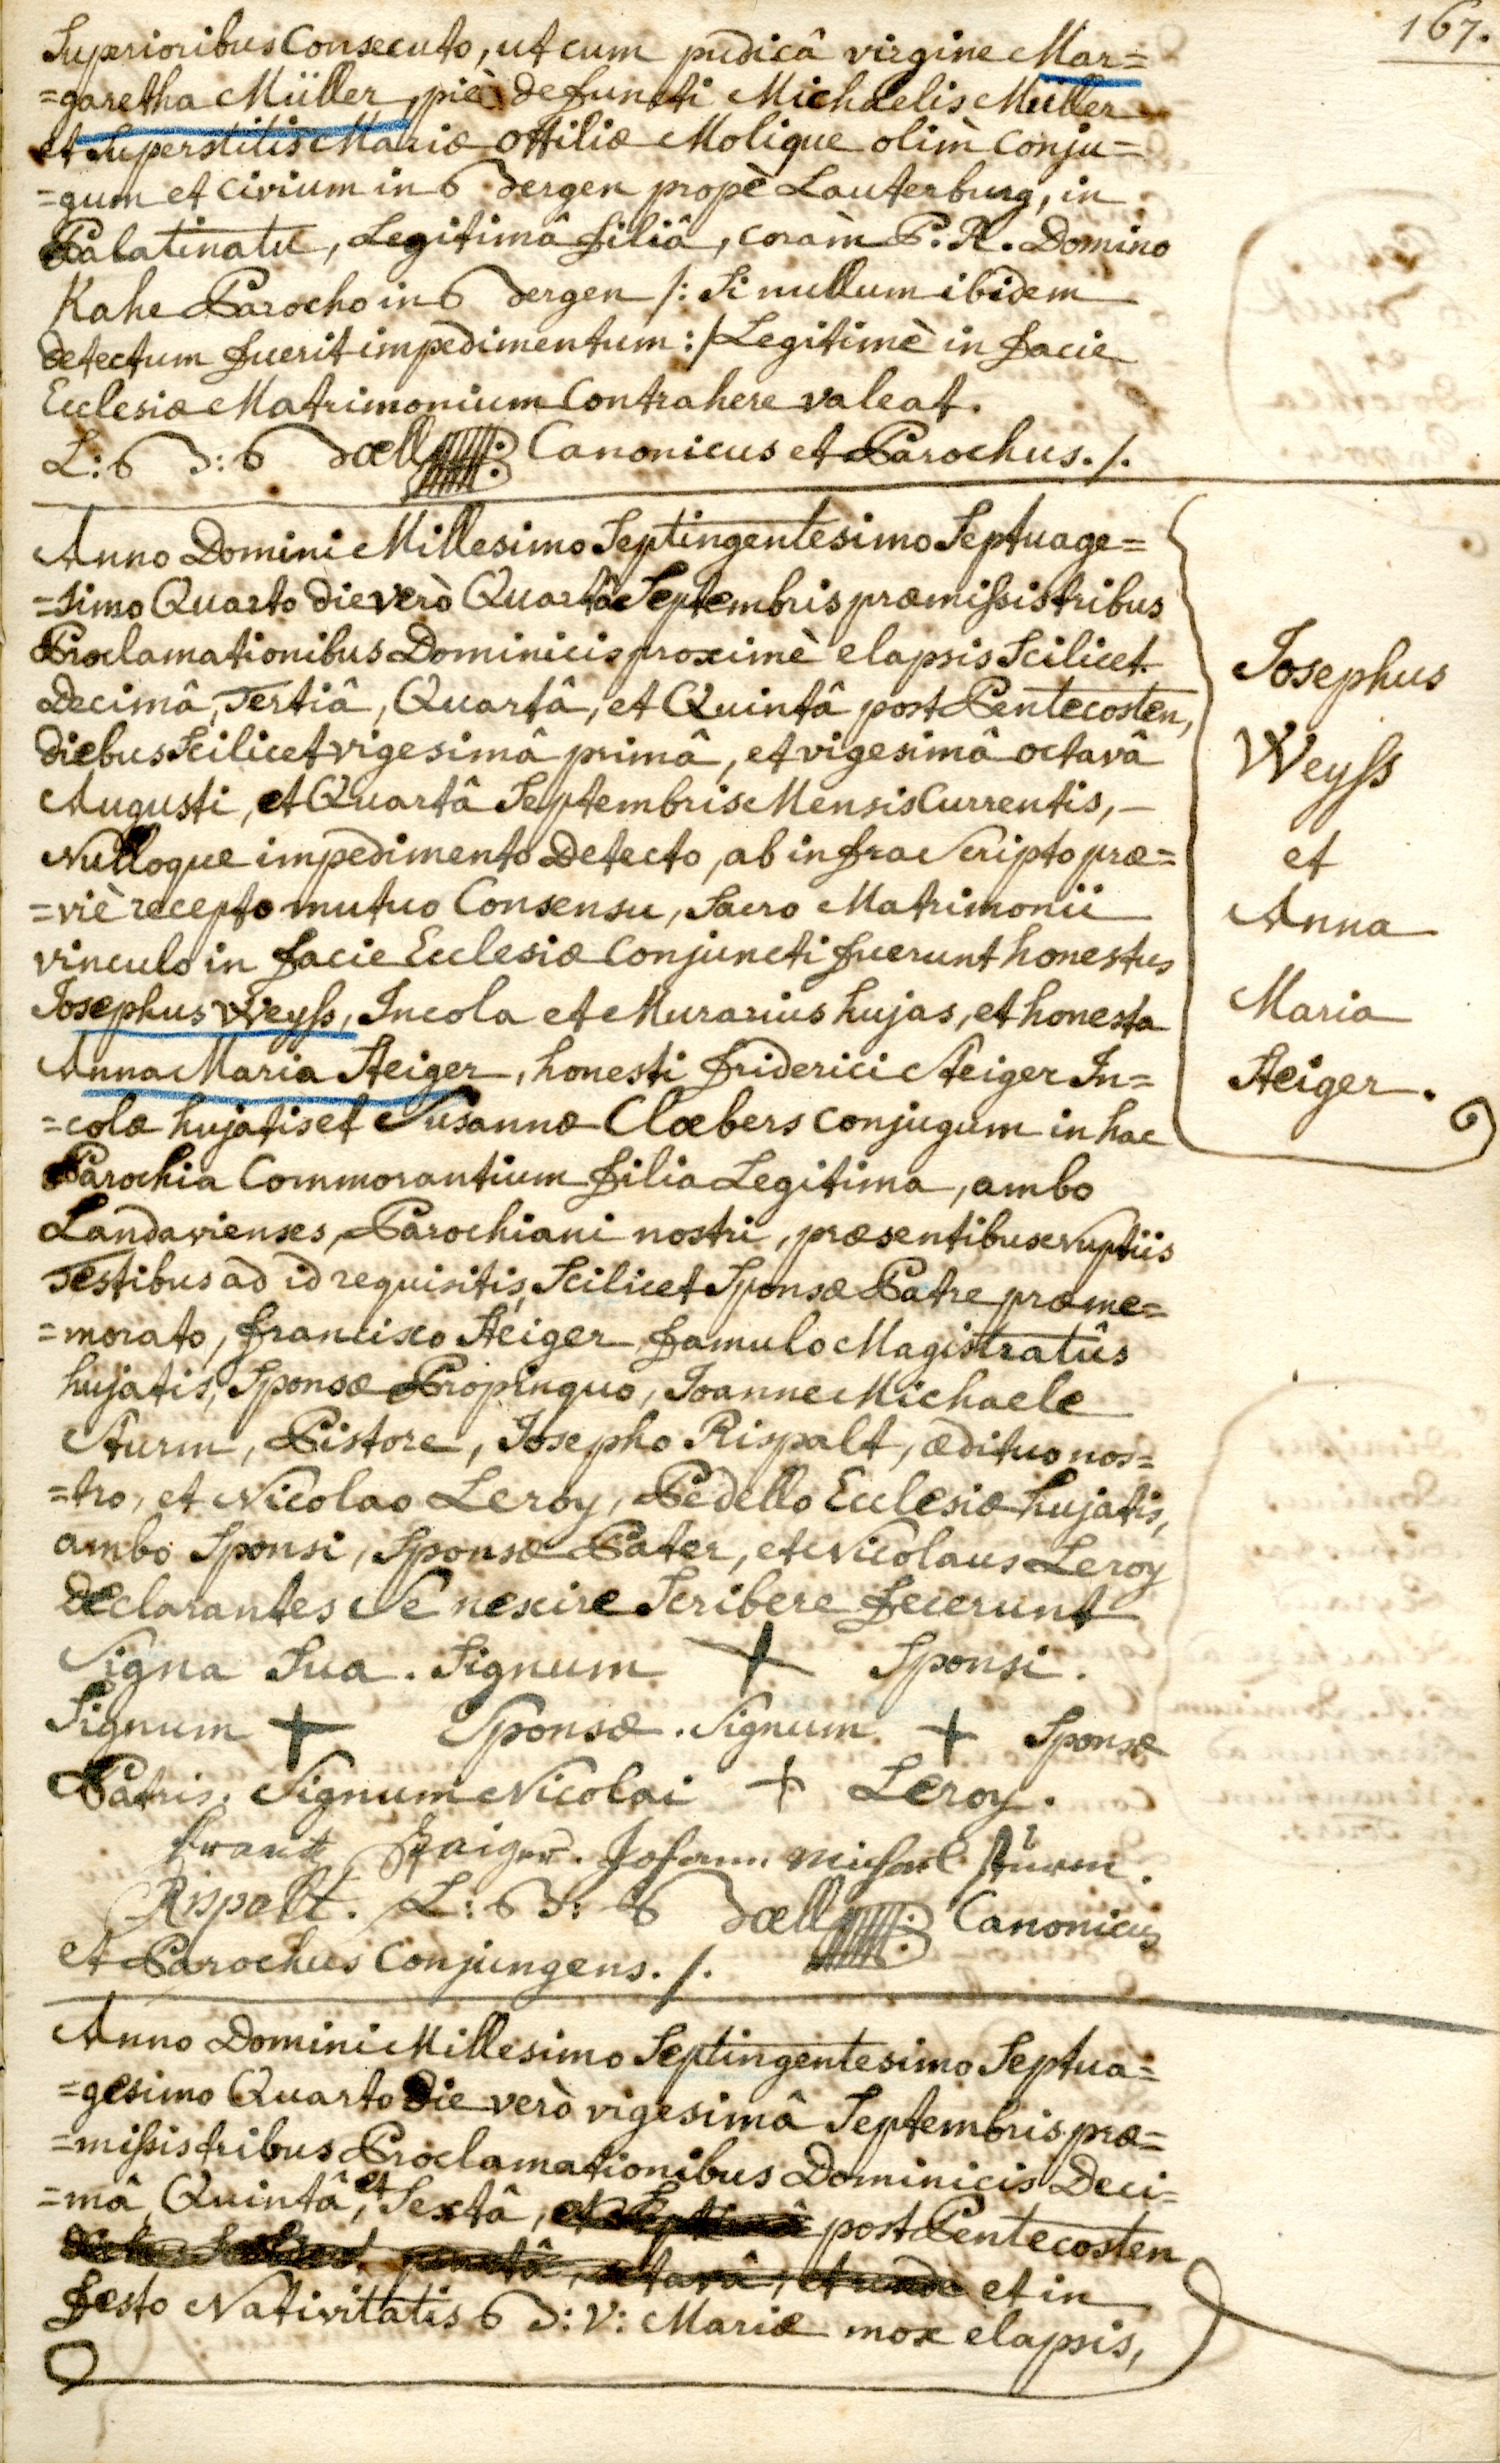 167.
Superioribus Consecuto, ut cum pudicâ virgine Mar=
=garetha Müller, piè defuncti Michaelis Müller
et Superstitis Mariæ Ottiliæ Molique olim Conju=
=gum et Civium in Bergen propè Lauterburg, in
Palatinatu, Legitimâ filiâ, coràm P. R. Domino
Kahe Parocho in Bergen /: Si nullum ibidem
detectum fuerit impedimentum :/ Legitimè in facie
Ecclesiæ Matrimonium Contrahere valeat.
L: B: Bdæll Canonicus et Parochus. /.
Anno Domini Millesimo Septingentesimo Septuage=
=simo Quarto die verò Quartâ Septembris præmissis tribus
Proclamationibus Dominicis proximè elapsis Scilicet
Decimâ, Tertiâ, Quartâ, et Quintâ post Pentecosten,
diebus Scilicet vigesimâ primâ, et vigesimâ octavâ
Augusti, et Quartâ Septembris Mensis Currentis, –
Nulloque impedimento Detecto, ab infra Scripto præ=
=viè recepto mutuo Consensu, Sacro Matrimonii
vinculo in facie Ecclesiæ Conjuncti fuerunt honestus
Josephus Weyss, Incola et Murarius hujas, et honesta
Anna Maria Steiger, honesti Friderici Steiger In=
=colæ hujatis et Susannæ Clæbers conjugum in hac
Parochia Commorantium filia Legitima, ambo
Landavienses, Parochiani nostri, præsentibus Nuptiis
Testibus ad id requisitis, Scilicet Sponsæ Patre præme=
=morato, Francisco Steiger famulo Magistratûs
hujatis, Sponsæ Propinquo, Joanne Michaele
Sturm, Pistore, Josepho Rispalt, ædituo nos=
=tro, et Nicolao Leroy, Pedello Ecclesiæ hujatis,
ambo Sponsi, Sponsæ Pater, et Nicolaus Leroy
declarantes Se nescire Scribere fecerunt
Signa Sua. Signum + Sponsi.
Signum + Sponsæ. Signum + Sponsæ
Patris. Signum Nicolai + Leroy.
frantz Staiger. Johann Michael Stürm.
Rispalt. L: B: Bdæll Canonicus
et Parochus Conjungens. /.
Josephus
Weyss
et
Anna
Maria
Steiger.
Anno Domini Millesimo Septingentesimo Septua=
=gesimo Quarto die verò vigesimâ Septembris præ=
=missis tribus Proclamationibus Dominicis Deci=
=mâ, Quintâ, et Sextâ, post Pentecosten
et in
festo Nativitatis B: V: Mariæ mox elapsis,